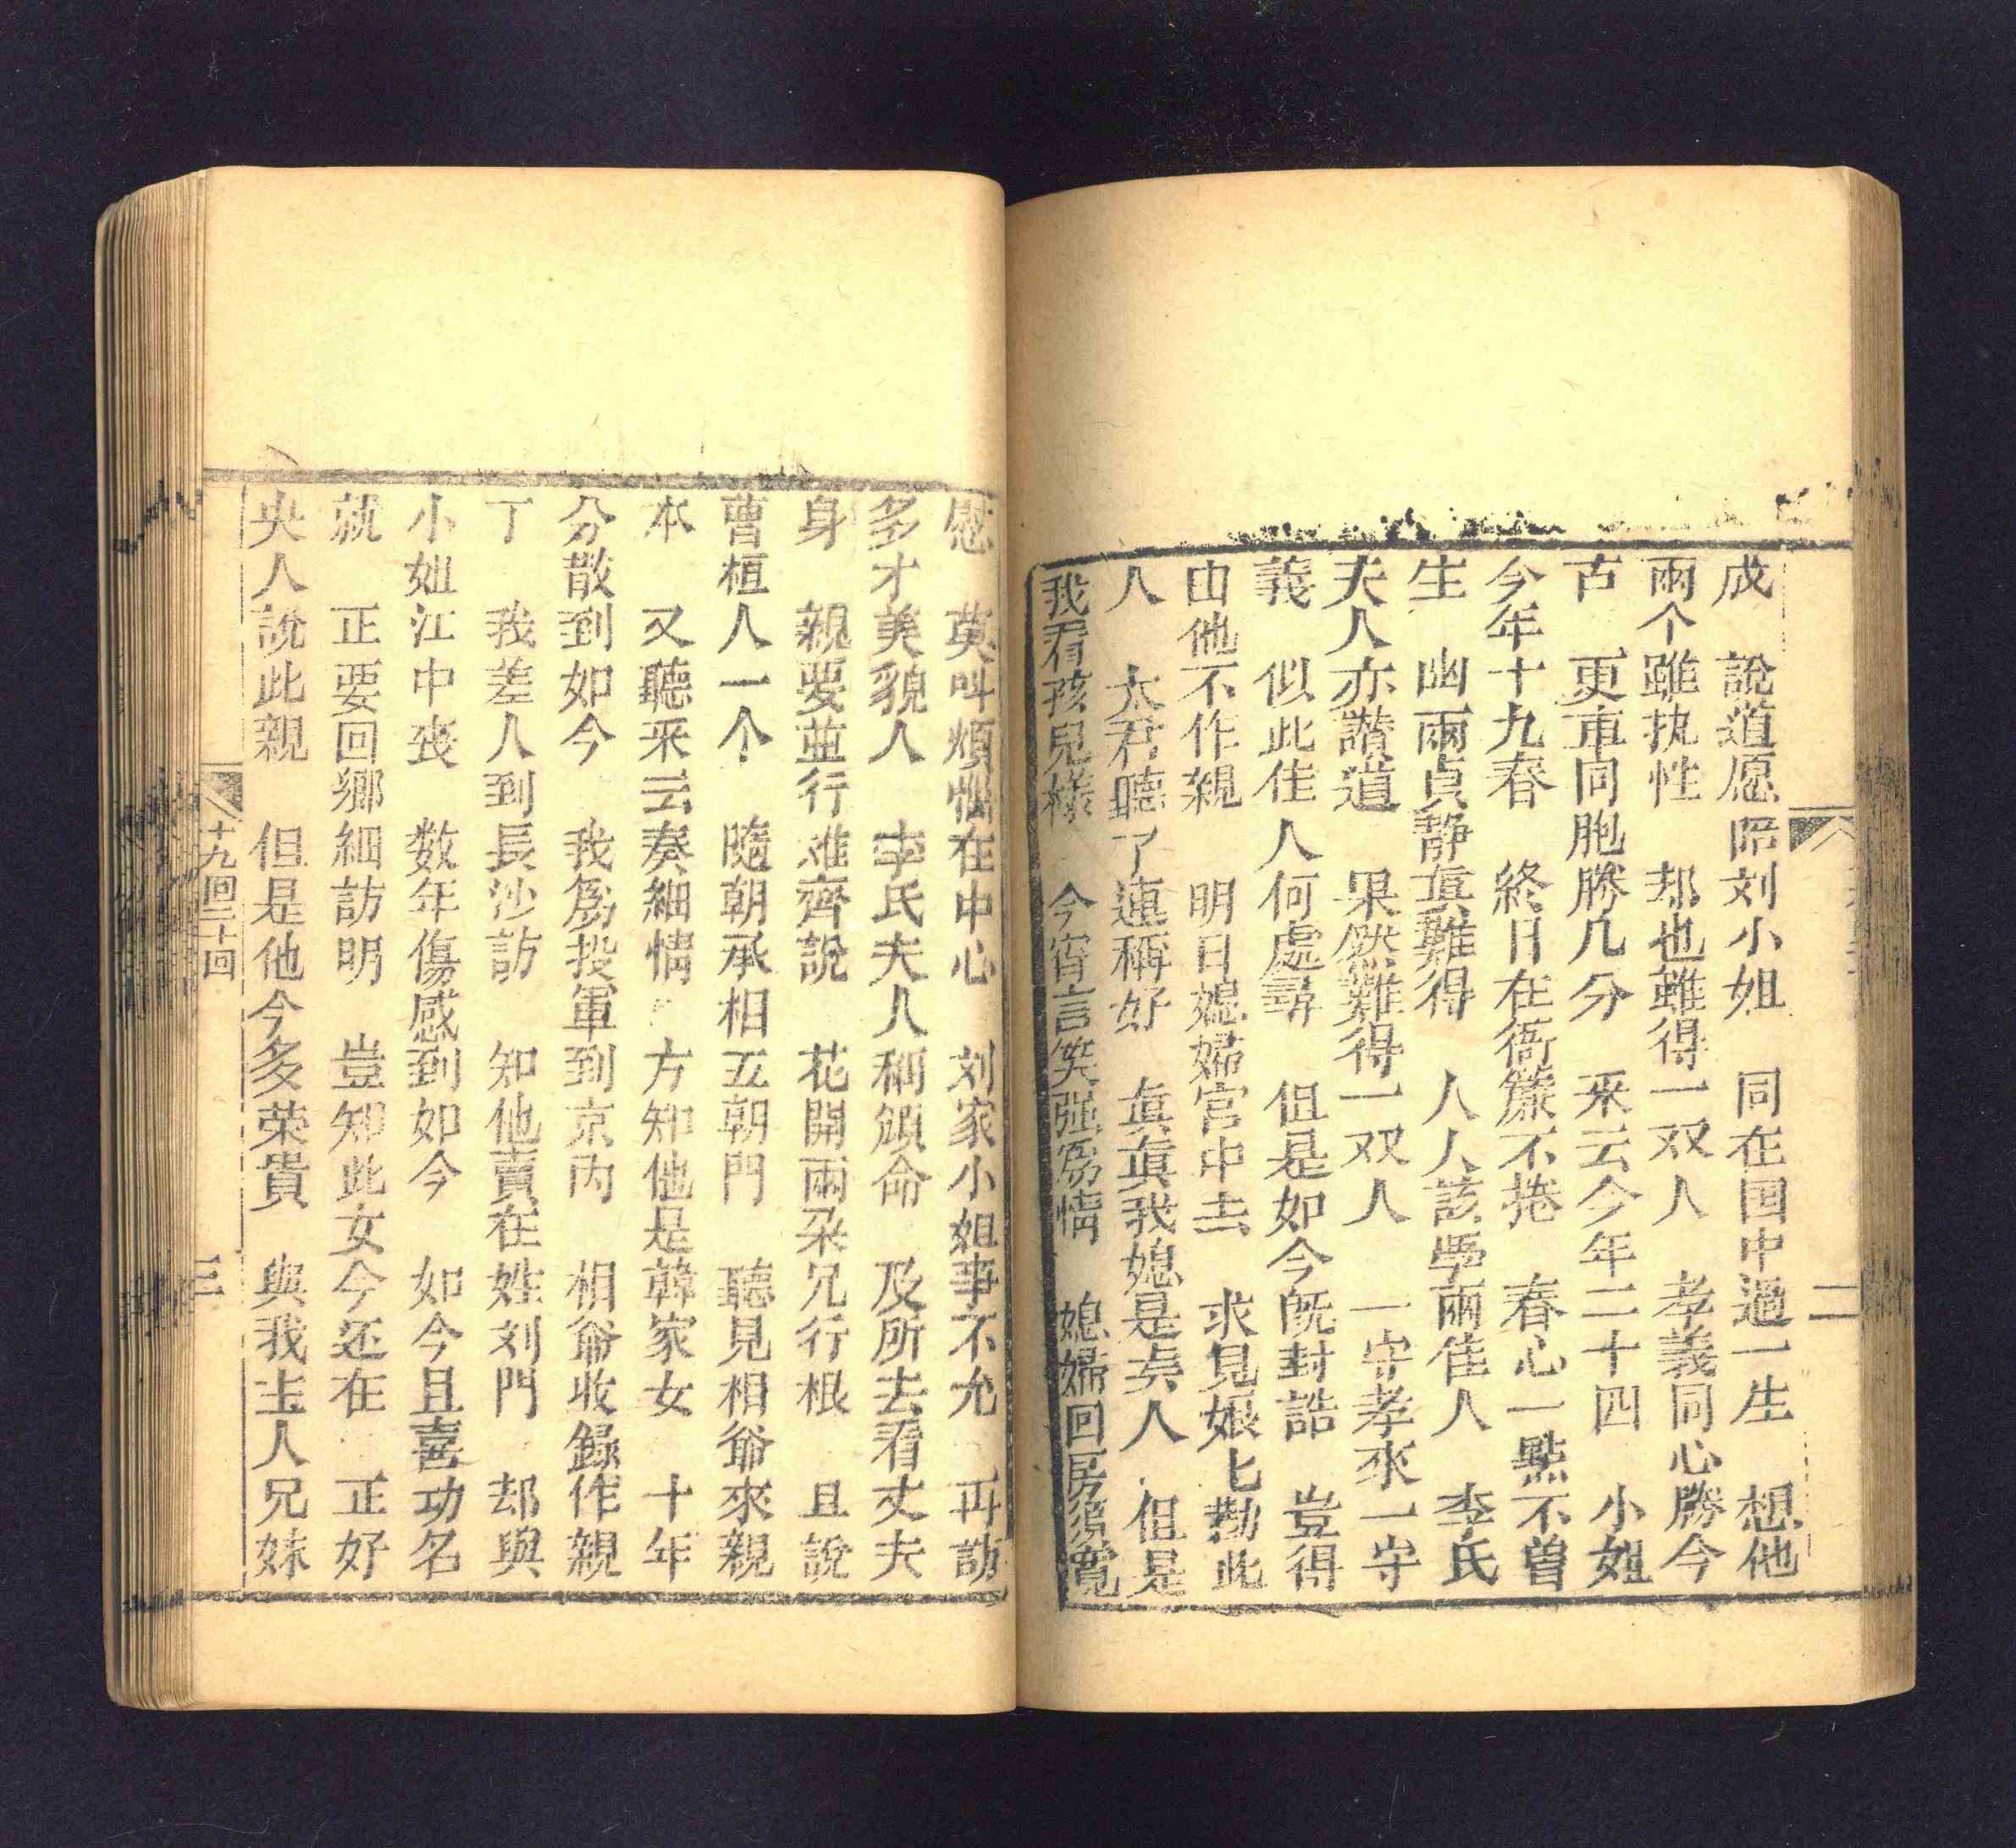 成　說道愿陪刘小姐　同在囯中過一生　想他
兩个雖执性　却也雖得一双人　孝義同心勝今
古　更車同胞勝几分　来云今年二十四　小姐
今年十九春　終日在衙簾不捲　春心一點不曽
生　幽兩貞静眞難得　人人該學兩佳人　李氏
夫人亦讃道　果然難得一双人　一守孝來一守
義　似此佳人何處尋　但是如今旣封誥　豈得
由他不作親　明日媳婦宫中去　求見娘匕勸此
人　太君聽了連稱好　眞眞我媳是矣人　但是
我看孩兒㨾　今宵言笑强爲情　媳婦回房須寬
慰　莫呌煩惱在中心　刘家小姐事不允　再訪
多才美貌人　李氏夫人稱領命　及所去看丈夫
身　親要並行难齊說　花開兩朶兄行根　且說
曹桓人一个　隨朝承相五朝門　聽見相爺來親
本　又聽来云奏細情　方知他是韓家女　十年
分散到如今　我爲投軍到京内　相爺收錄作親
丁　我差人到長沙訪　知他賣在姓刘門　却與
小姐江中丧　数年傷感到如今　如今且喜功名
就　正要回鄉細訪明　豈知此女今还在　正好
央人說此親　但是他今多荣貴　與我主人兄妹
十九囘二十囬　三
二